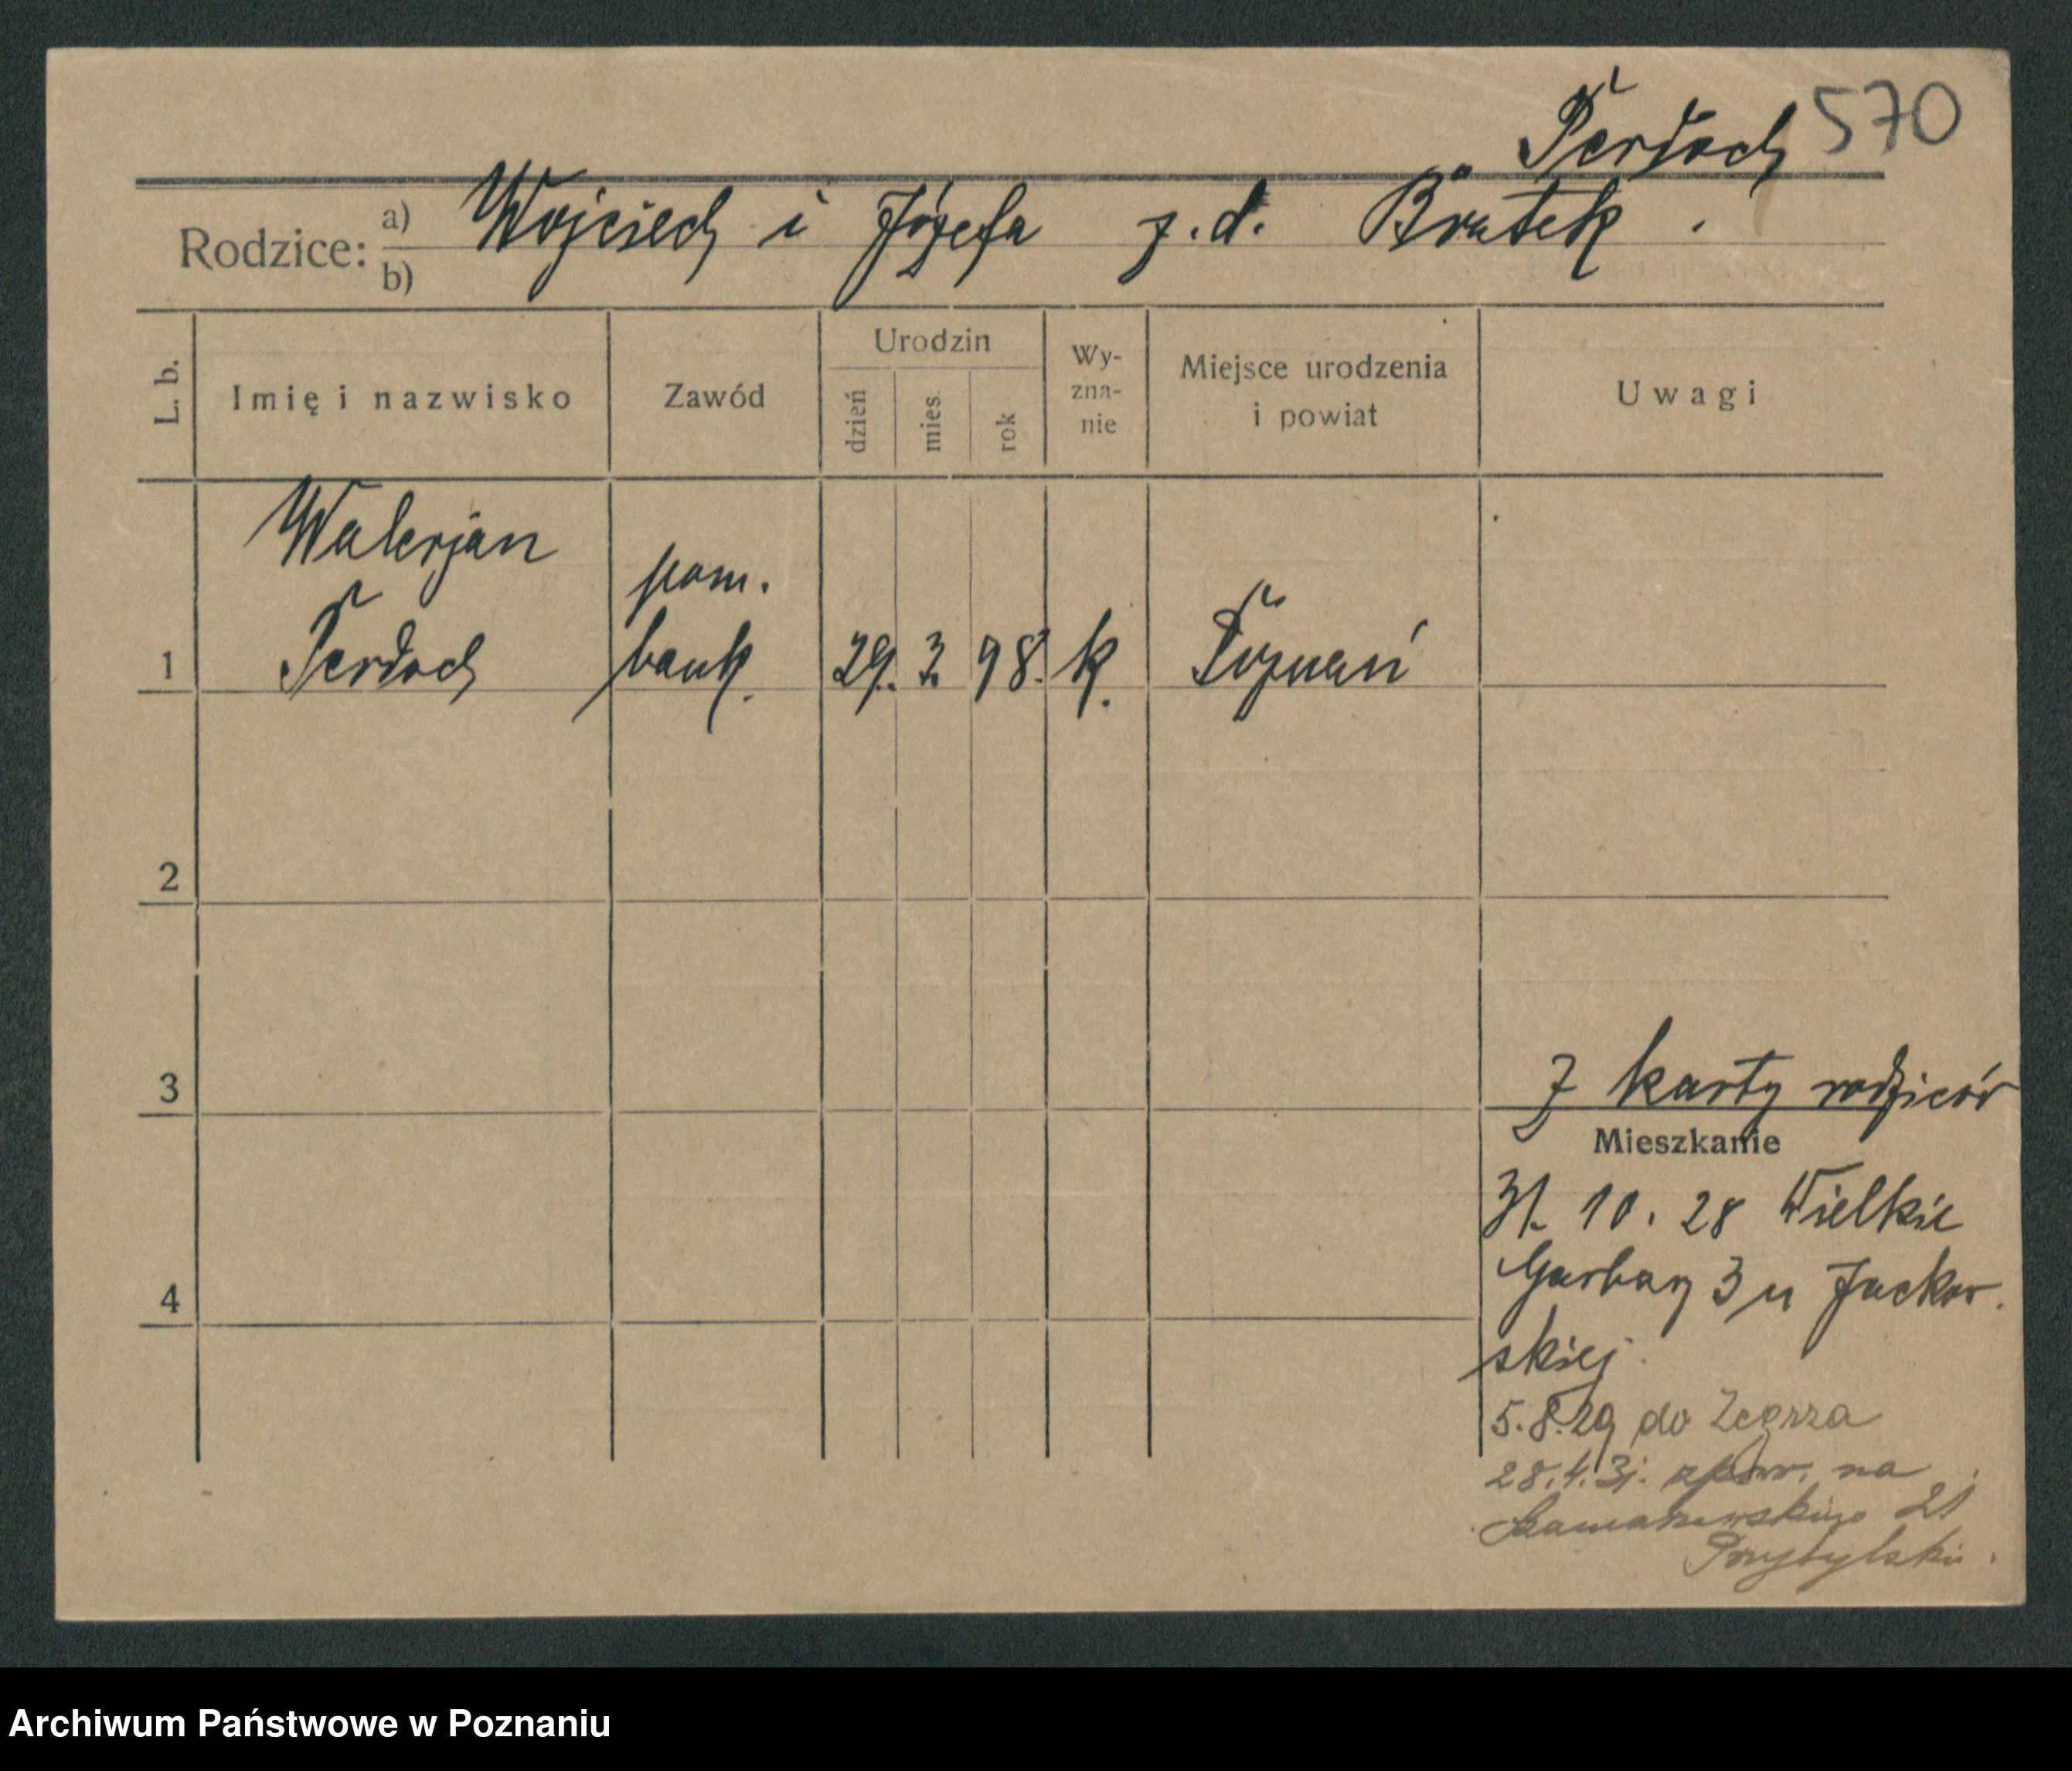 Perdoch 570
Rodzice: a) Wojciech i Józefa z. d. Bratek.
b)
L. b. Imię i nazwisko Zawód Urodzin dzień mies. rok Wyzna-nie Miejsce urodzenia i powiat Uwagi
Walerjan
pom.
1 Perdoch bank. 29. 3. 98. k. Poznań
2
3
Z karty rodziców
Mieszkanie
31. 10. 28 Wielkie
Garbary 3 u Jackow-
4
skiej.
5.8.29 do Zegrza
28.4.31. na
Szamarzewskiego 21
Przybylski.
Archiwum Państwowe w Poznaniu